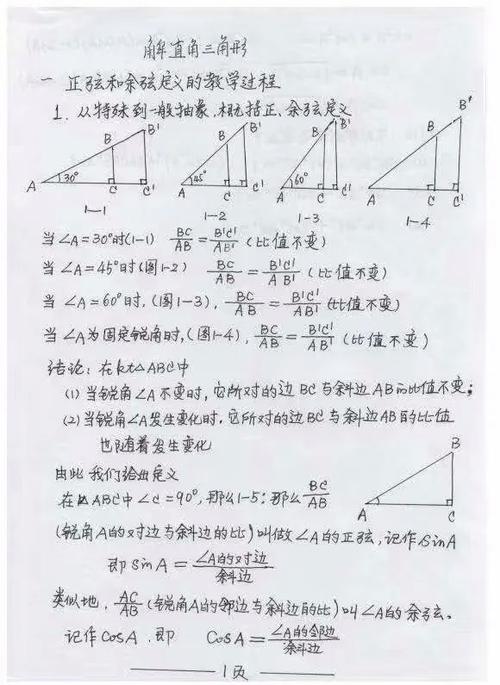 解直角三角形
一 正弦和余弦定义的教学过程
1. 从特殊到一般抽象,概括正、余弦定义
A 30° B B' C C'
A 45° B B' C C'
A 60° B B' C C'
A B B' C C'
1—1
1—2
1—3
1—4
当∠A=30°时(1-1) BC/AB = B'C'/AB' (比值不变)
当∠A=45°时(图1-2) BC/AB = B'C'/AB' (比值不变)
当∠A=60°时,(图1-3), BC/AB = B'C'/AB' (比值不变)
当∠A为固定锐角时,(图1-4), BC/AB = B'C'/AB' (比值不变)
结论:在Rt△ABC中
(1)当锐角∠A不变时,它所对的边BC与斜边AB的比值不变;
(2)当锐角∠A发生变化时.它所对的边BC与斜边AB的比值
也随着发生变化
由此我们给出定义
在Rt△ABC中∠C=90°,那么1-5:那么 BC/AB
A B C
(锐角A的对边与斜边的比)叫做∠A的正弦,记作SinA
即 sinA = ∠A的对边/斜边
类似地, AC/AB (锐角A的邻边与斜边的比)叫∠A的余弦。
记作CosA .即 CosA = ∠A的邻边/斜边
1页